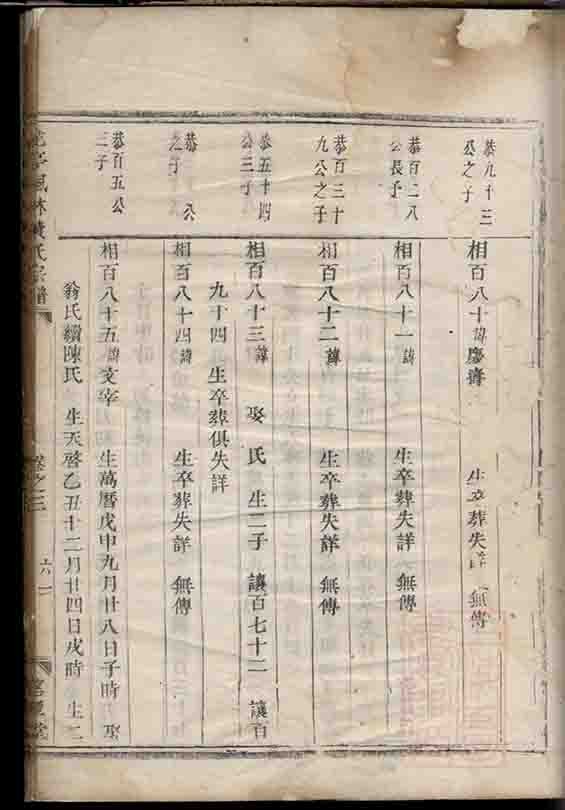 恭九十三
公之子
相百八十諱慶壽 生卒葬失詳 無傳
恭百二八
公長子
相百八十一諱 生卒葬失詳 無傳
恭百三十
九公之子
相百八十二諱 生卒葬失詳 無傳
恭五十四
公三子
相百八十三諱 娶 氏 生二子 讓百七十二 讓百
九十四 生卒葬俱失詳
恭 公
之子
相百八十四諱 生卒葬失詳 無傳
恭百五公
三子
相百八十五諱文宰 生萬曆戊申九月廿八日子時 娶
翁氏續陳氏 生天啓乙丑十二月廿四日戌時 生二
林黃氏宗譜
卷之三
六一
堂